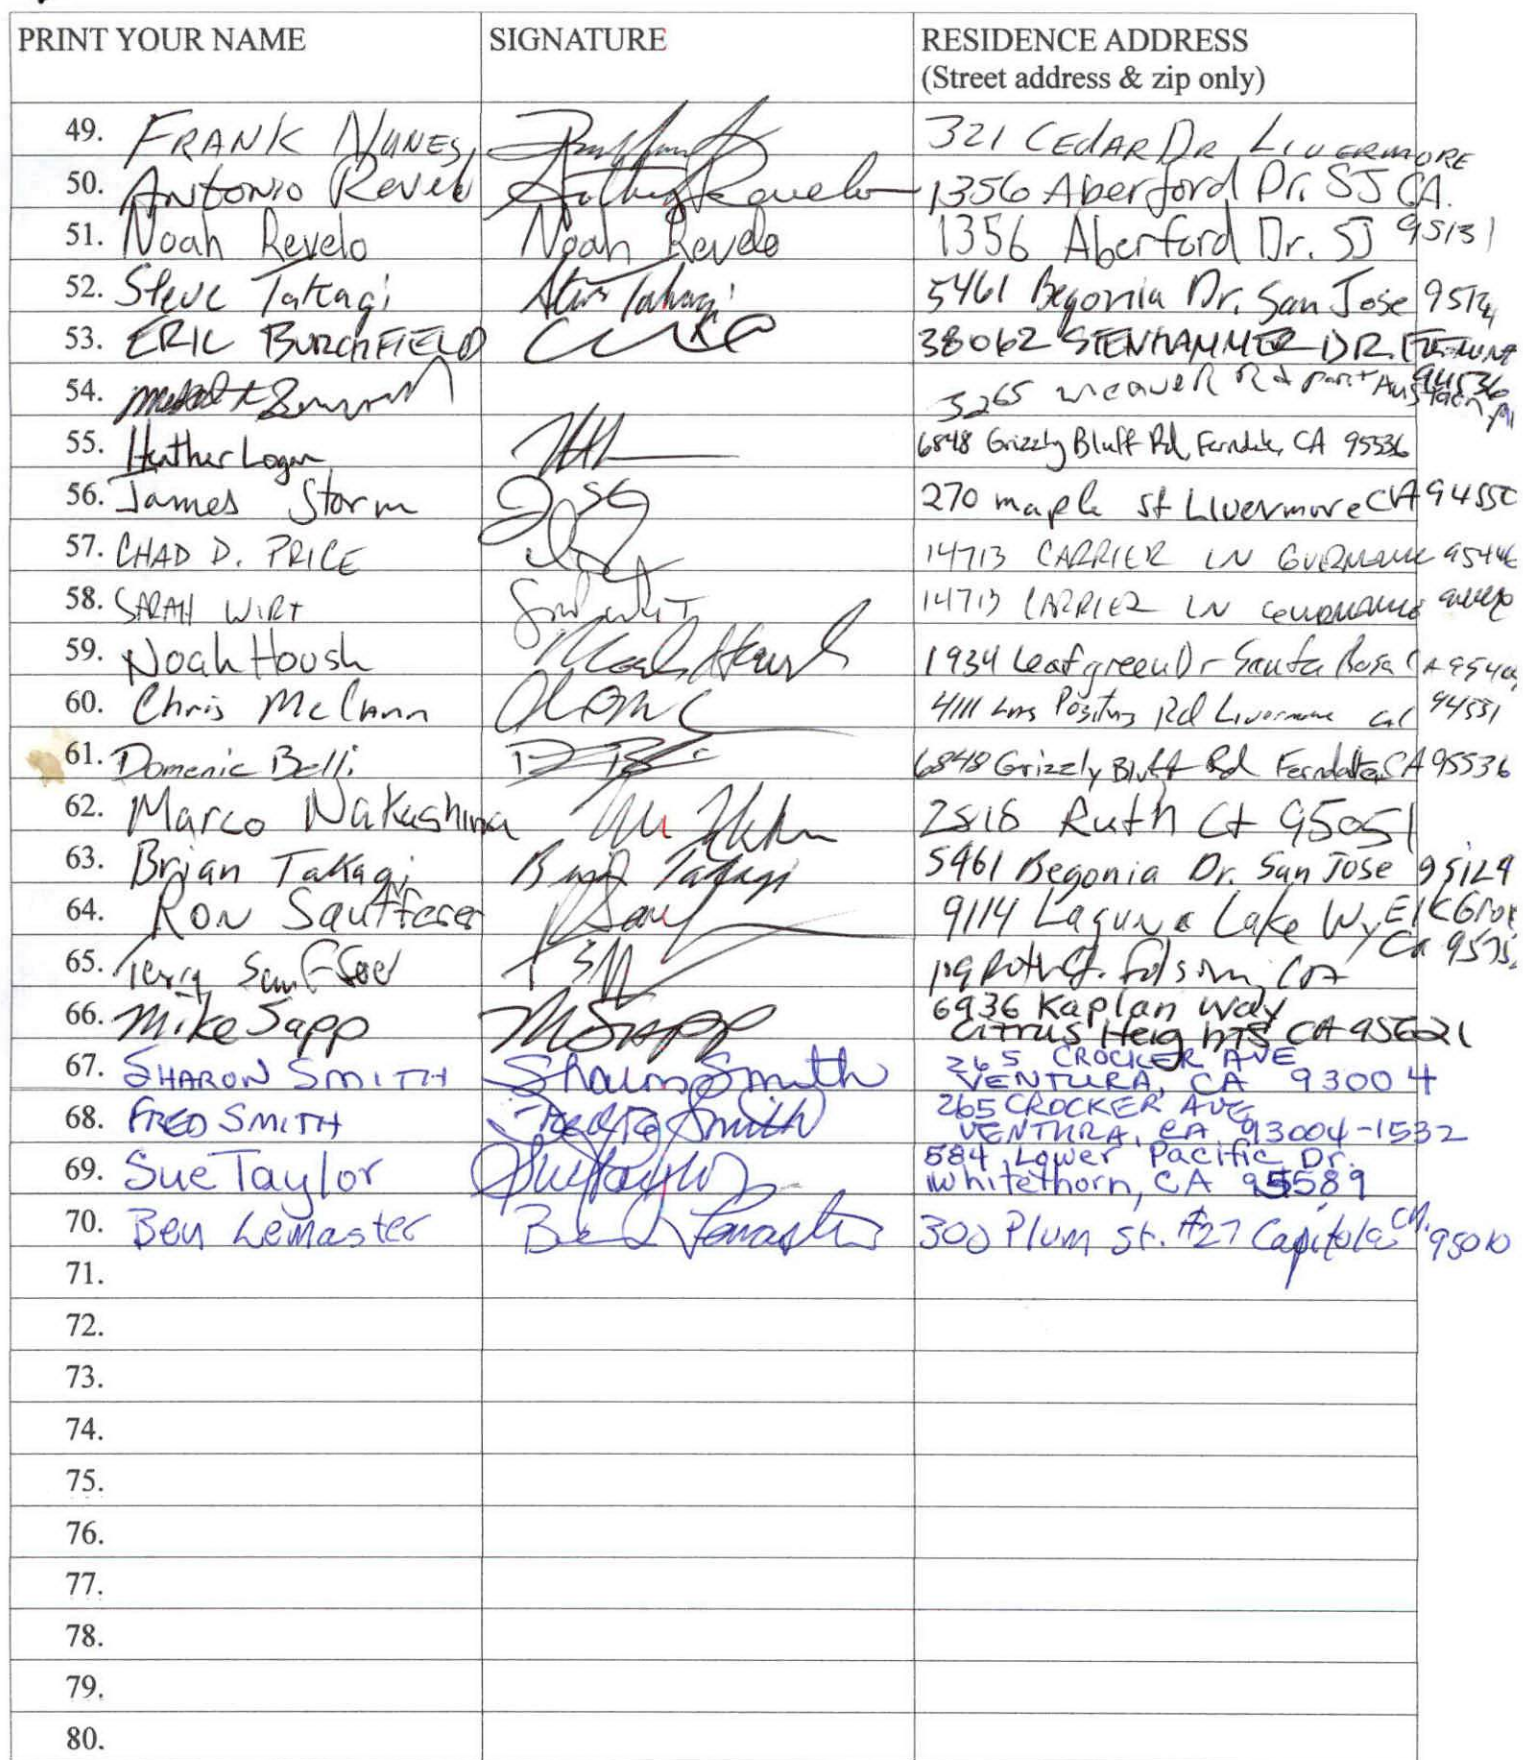 PRINT YOUR NAME SIGNATURE RESIDENCE ADDRESS
(Street address & zip only)
49. FRANK NUNES 321 CEDAR DR LIVERMORE
50. ANTONIO Revelo 1356 Aberford Dr. SJ CA.
51. Noah Revelo Noah Revelo 1356 Aberford Dr. SJ 95131
52. Steve Takagi Steve Takagi 5461 Begonia Dr. San Jose
53. ERIC BURCHFIELD 38062 STENHAMMER DR. FREMONT
94536
54. 3265 weaver Rd port
55. Heather Logan 6848 Grizzly Bluff Rd, Ferndale, CA 95536
56. James Storm 270 maple St Livermore CA 94550
57. CHAD D. PRICE 14713 CARRIER LN 95446
58. SARAH WIRT 14713 CARRIER LN
59. Noah Housh Noah Housh 1934 Leafgreen Dr Santa Rosa CA
60. Chris McCann 4111 Rd Livermore Cal
61. Domenic Belli 6848 Grizzly Bluff Rd Ferndale, CA 95536
62. Marco Nakashima Ruth Ct 95051
63. Brian Takagi Brian Takagi 5461 Begonia Dr. San Jose 95129
64. RON Sautferer 9114 Laguna Lake Wy Elk Grove
Ca
65. Terry Folsom, CA
66. Mike Sapp M Sapp 6936 Kaplan Way
Citrus Heights CA 95621
67. SHARON SMITH Sharon Smith 265 CROCKER AVE
VENTURA, CA 93004
68. FRED SMITH Smith 265 CROCKER AVE
VENTURA, CA 93004-1532
69. Sue Taylor Sue Taylor 584 Lower Pacific Dr.
Whitethorn, CA 95589
70. Ben Lemaster Ben Lemaster 300 Plum St. #27 Capitola CA. 95010
71.
72.
73.
74.
75.
76.
77.
78.
79.
80.